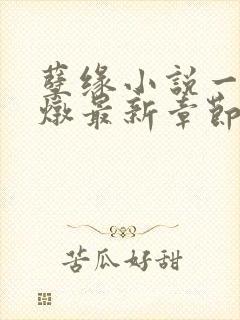 孽缘小説一
燉最新章節
苦瓜好甜